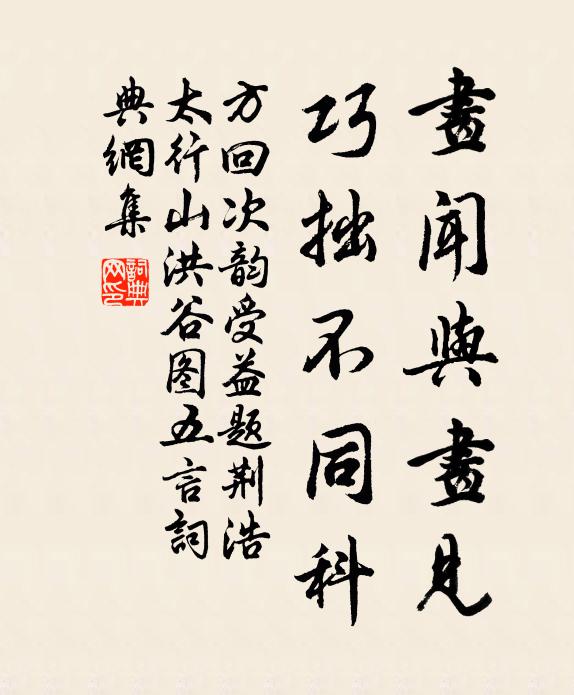 畫聞與畫見
巧拙不同科
方回次韵受益题荆浩
太行山洪谷图五言詞
典網集
詞典
网印